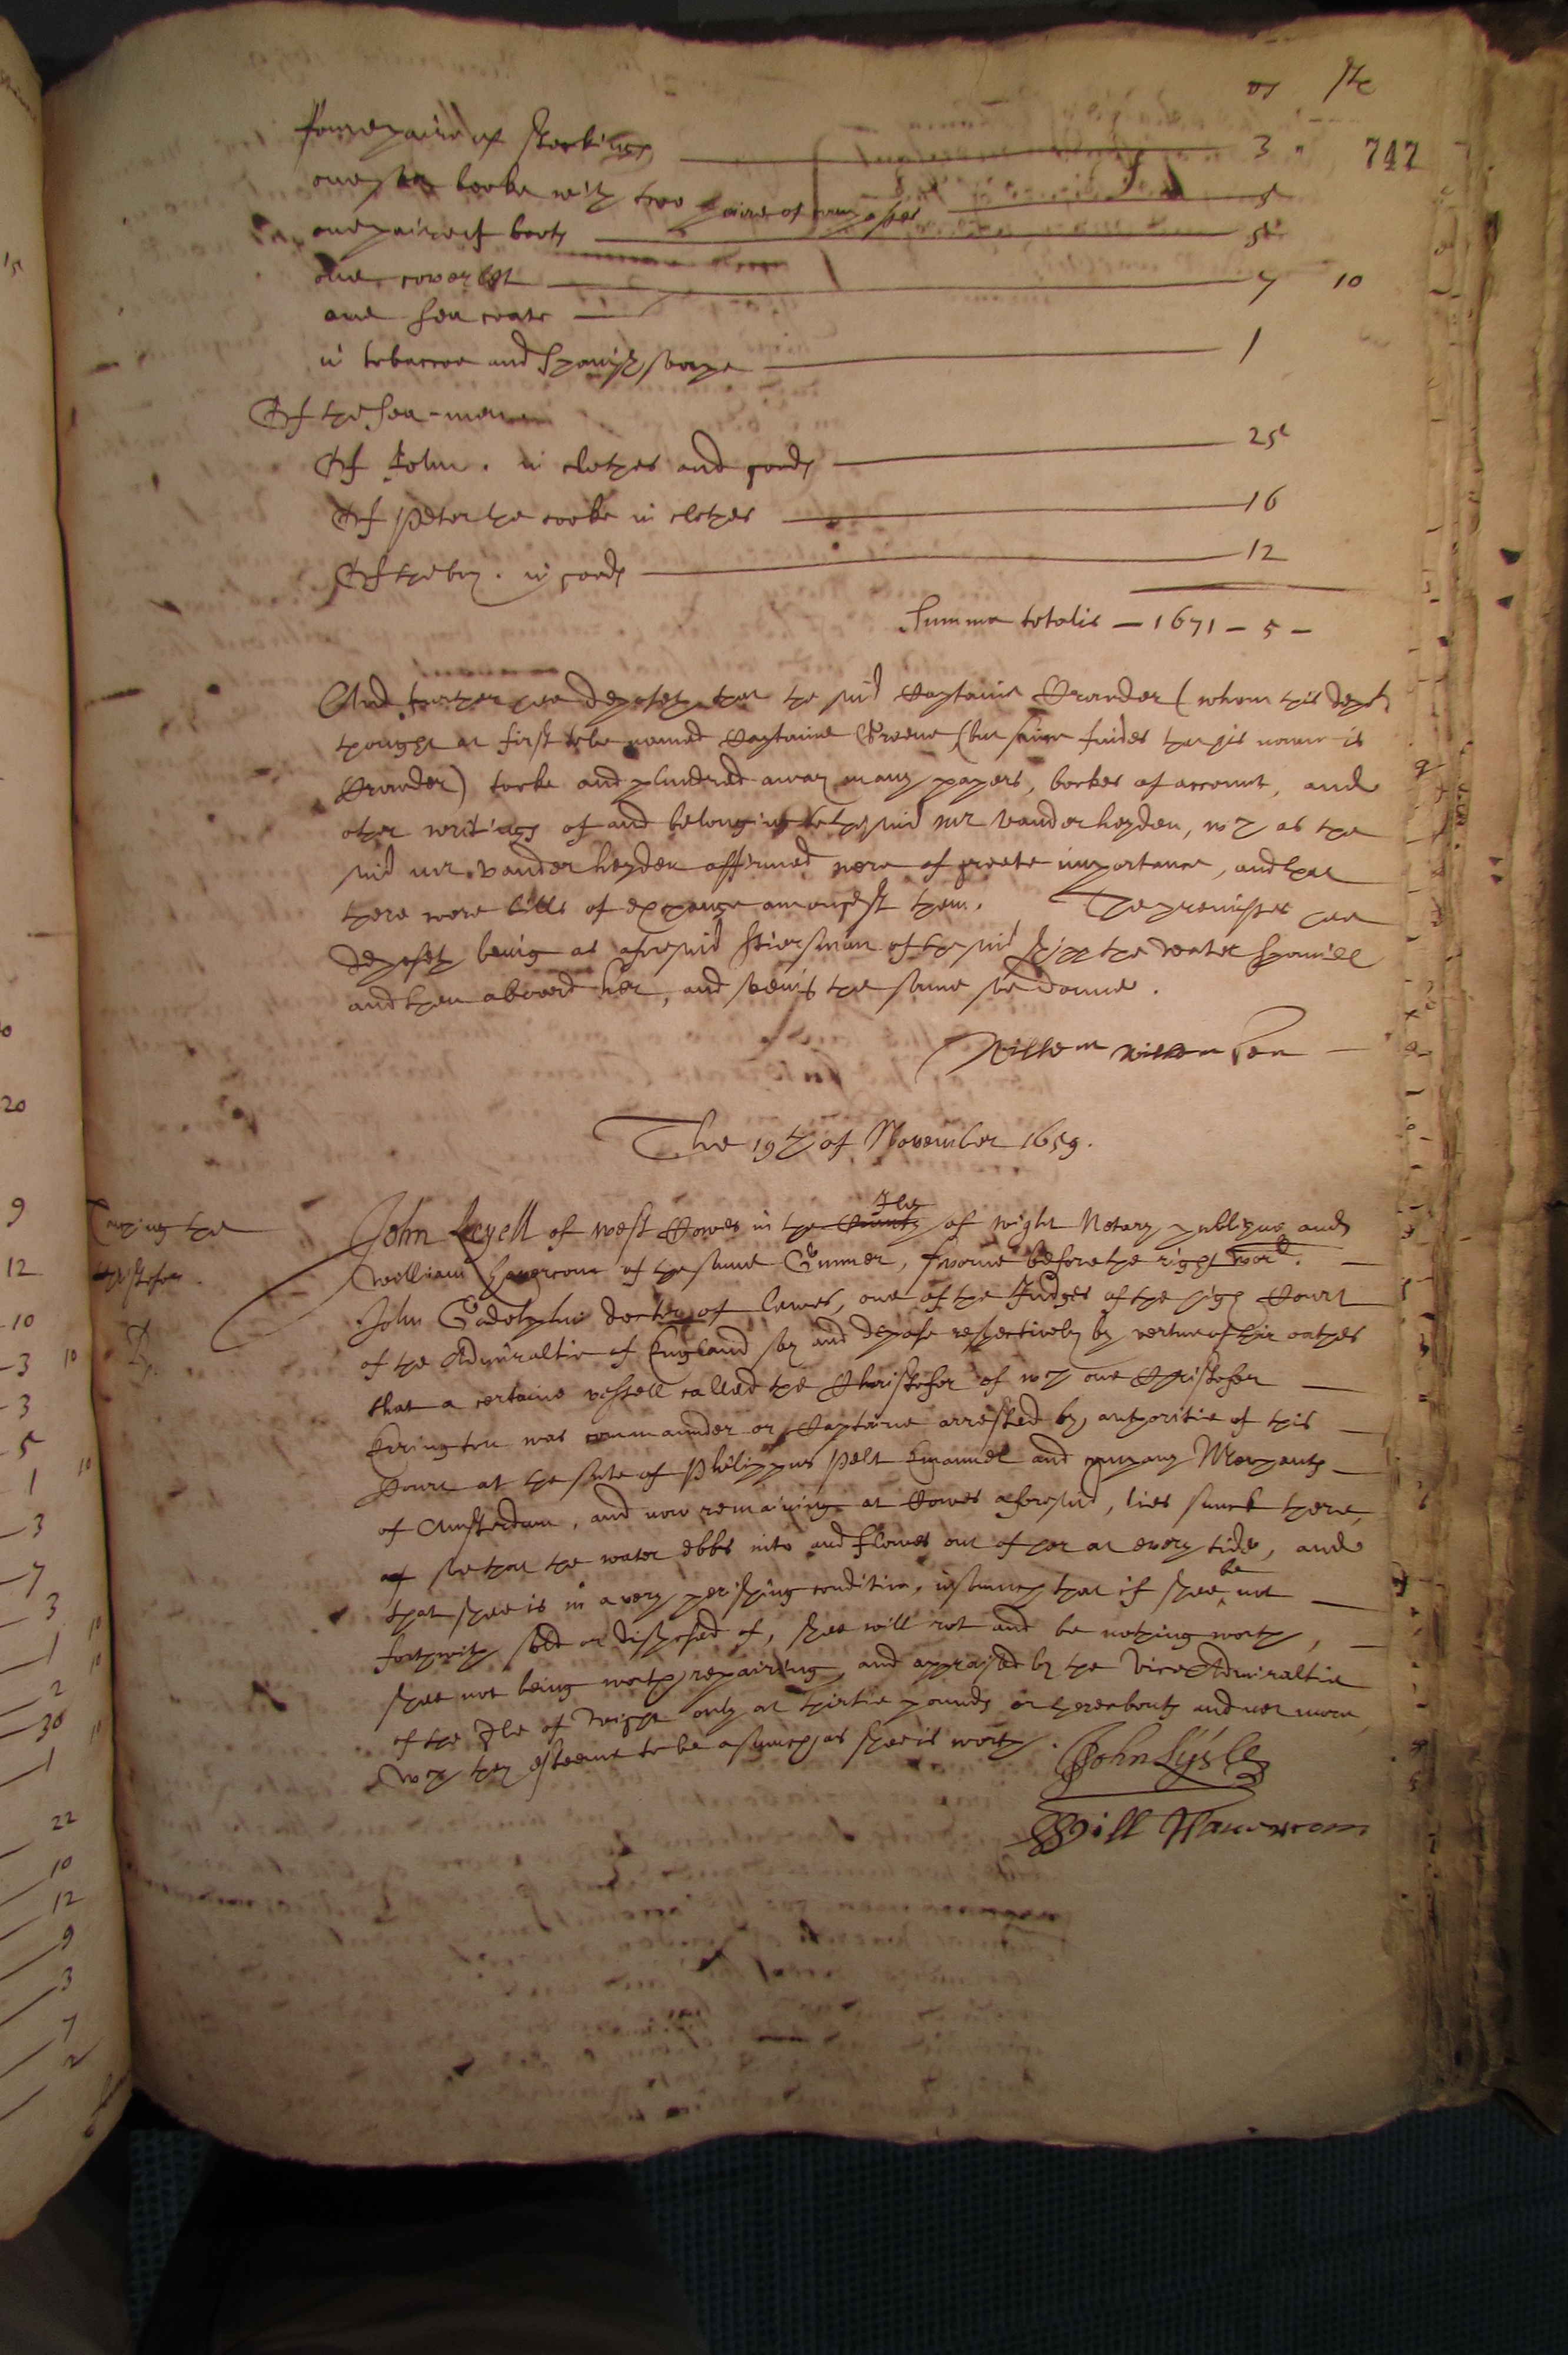 747
foure paire of stockings 3
one sea booke with two paire of compasses 5
one paire of boots 5
one coverlet 7 10
one sea coate
in tobaccoe and Spanish soape 1
Of the sea-men
Of John. in clothes and goods 25
Of Peter the cooke in clothes 16
Of the boy. in goods 12
Summa totalis - 1671 - 5 -
And further hee deposeth that the said Captaine Crowder (whom this depot
thought at first to be named Captaine Greene (but since findes that his name is
Crowder) tooke and plundred away many papers, bookes of account, and
other writings of and belonging to the said mr vander heyden, wch as the
said mr. vander heyden affirmed were of greate importance, and that
there were bills of exchange amongest them. The premisses hee
deposeth being as aforesaid stiersman of the said shipp the water Spaniell
and then aboord her, and seeing the same soe donne.
Willem willemsen
The 19th of November 1659.
Touching the
Christofer.
John Lysell of west Cowes in the County Ile of wight Notary publique and
William Havercom of the same Gunner, sworne before the right worll.
John Godolphin doctor of lawes, one of the Judges of the high Court
of the Admiraltie of England say and depose respectively by vertue of their oathes
that a certaine vessell called the Christofer of wch one Christofer
Errington was commaunder or Captaine arrested by authoritie of this
Court at the suite of Philippus Pelt Emanuel and company Merchants
of Amsterdam, and now remaining at Cowes aforesaid, lies sunck there,
soe that the water ebbs into and flowes out of her at every tide, and
that shee is in a very perishing condition, insomuch that if shee be not
forthwith sold or disposed of, shee will rot and be nothing worth,
shee not being worth repairing, and appraised by the Vice Admiraltie
of the Ile of Wight only at thirtie pounds or thereabouts and not more
wch they esteeme to be as much as shee is worth.
John Lysle
Will Havercom